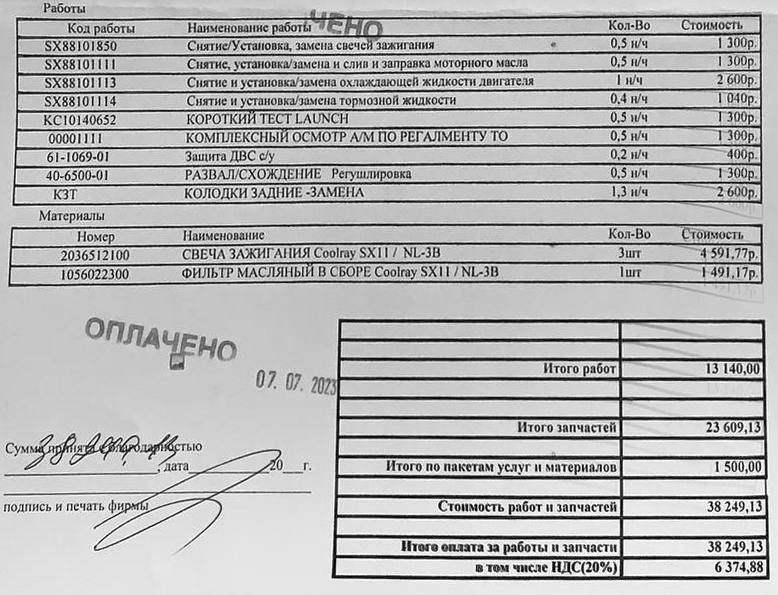 Работы
ЧЕНО
Код работы Наименование работы Кол-Во Стоимость
SX88101850 Снятие/Установка, замена свечей зажигания 0,5 н/ч 1 300р.
SX88101111 Снятие, установка/замена и слив и заправка моторного масла 0,5 н/ч 1 300р.
SX88101113 Снятие и установка/замена охлаждающей жидкости двигателя 1 н/ч 2 600р.
SX88101114 Снятие и установка/замена тормозной жидкости 0,4 н/ч 1 040р.
KC10140652 КОРОТКИЙ ТЕСТ LAUNCH 0,5 н/ч 1 300р.
00001111 КОМПЛЕКСНЫЙ ОСМОТР А/М ПО РЕГАЛМЕНТУ ТО 0,5 н/ч 1 300р.
61-1069-01 Защита ДВС с/у 0,2 н/ч 400р.
40-6500-01 РАЗВАЛ/СХОЖДЕНИЕ Регушлировка 0,5 н/ч 1 300р.
КЗТ КОЛОДКИ ЗАДНИЕ -ЗАМЕНА 1,3 н/ч 2 600р.
Материалы
Номер Наименование Кол-Во Стоимость
2036512100 СВЕЧА ЗАЖИГАНИЯ Coolray SX11 / NL-3B 3шт 4 591,77р.
1056022300 ФИЛЬТР МАСЛЯНЫЙ В СБОРЕ Coolray SX11 / NL-3B 1шт 1 491,17р.
ОПЛАЧЕНО
07. 07. 2023
Итого работ 13 140,00
Итого запчастей 23 609,13
Сумма принята с благодарностью
, дата 20 г.
Итого по пакетам услуг и материалов 1 500,00
подпись и печать фирмы
Стоимость работ и запчастей 38 249,13
Итого оплата за работы и запчасти 38 249,13
в том числе НДС(20%) 6 374,88